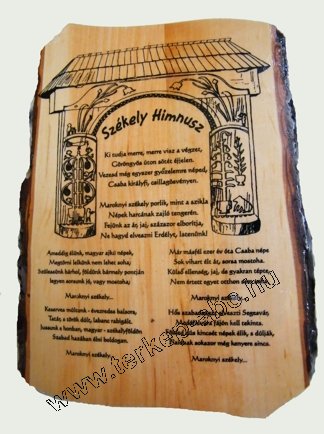 Székely Himnusz
Ki tudja merre, merre visz a végzet,
Göröngyös úton sötét éjjelen.
Vezesd még egyszer győzelemre néped,
Csaba királyfi, csillagösvényen.
Maroknyi székely porlik, mint a szikla
Népek harcának zajló tengerén.
Fejünk az ár, jaj, százszor elborítja,
Ne hagyd elveszni Erdélyt, Istenünk!
Ameddig élünk, magyar ajkú népek,
Megtörni lelkünk nem lehet soha;
Szülessünk bárhol, földünk bármely pontján
legyen sorsunk jó, vagy mostoha;
Maroknyi székely...
Keserves múltunk - évezredes balsors,
Tatár, s török dúlt, labanc rabigált.
Jussunk e honban, magyar - székelyföldön
Szabad hazában élni boldogan.
Maroknyi székely...
Már másfél ezer év óta Csaba népe
Sok vihart élt át, sorsa mostoha.
Külső ellenség, jaj, de gyakran tépte,
Nem értett egyet otthon
Maroknyi székely...
Hős szabadság
elveszti Segesvár,
Mádéfalvára fájón kell tekints.
kincsét népek élik, s dúlják,
sokszor még kenyere sincs.
Maroknyi székely...
www.terkepzabc.hu